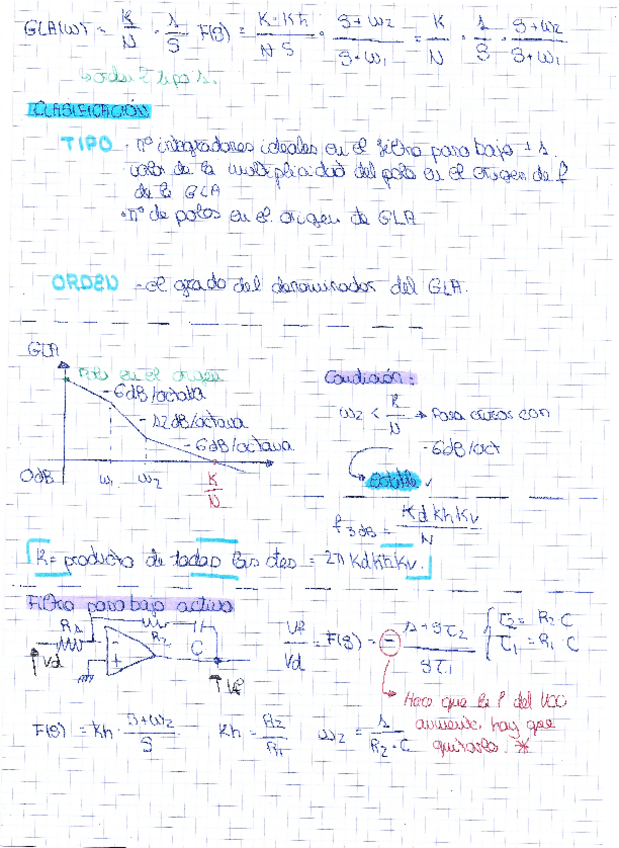 GLA(W) = K/N · 1/S F(S) = K·Kh/N S · S+ω2/S+ω1 = K/N · 1/S · S+ω2/S+ω1
orden 2 tipo 1.
CLASIFICACIÓN
TIPO · nº integradores ideales en el filtro paro bajo + 1.
valor de la multiplicidad del polo en el origen de f
de la GLA
· nº de polos en el origen de GLA
ORDEN - el grado del denominador del GLA.
GLA
Polo en el origen
-6dB/octava
-12dB/octava
-6dB/octava
0dB ω1 ω2 K/N
Condición:
ω2 < K/N → Pasa curvas con
-6dB/oct
Estable
f3dB = Kd Kh Kv/N
K = producto de todas las ctes = 2π Kd Kh Kv.
Filtro paro bajo activo
R1 R2 C
Vd
Vf
Vf/Vd = F(S) = - 1+Sτ2/Sτ1 { τ2 = R2·C τ1 = R1·C
Hace que la f del VCO
aumente, hay que
quitarlo. *
F(S) = Kh · S+ω2/S Kh = R2/R1 ω2 = 1/R2·C